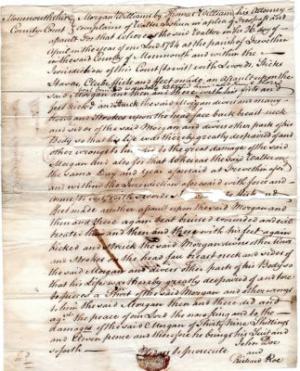 Monmouthshire Morgan Williams by Thomas Williams his Attorney
County Court complains of Walter in a plea of
for that whereas the said Walter on the day of
April in the year of our Lord 1784 at the parish of Trevethin
in the said County of Monmouth and within the
Jurisdiction of this Court there with Swords Sticks
Staves Clubs and feet made an assault upon the
said Morgan and then and there with his fists and
feet kicked and struck the said Morgan divers and many
times and Strokes upon the head face back neck
and sides of the said Morgan and divers other parts of his
Body so that his life was thereby greatly despaired of and
other wrongs to the great damage of the said
Morgan And also for that whereas the said Walter on
the same Day and Year aforesaid at Trevethin
and within the Jurisdiction aforesaid with force and
feet made another assault upon the said Morgan and
then and there again beat bruised wounded and evil
treated him and then and there with his feet again
kicked and struck the said Morgan divers other times
and Strokes on the head face breast neck and sides of
the said Morgan and divers other parts of his Body so
that his Life was thereby greatly despaired of and
of the said Morgan and other wrongs
to him the said Morgan then and there did and
against the peace of our Lord the now King and to the
damage of the said Morgan of Thirty Nine Shillings
and Eleven pence and therefore he brings his Suit and
so forth
to prosecute
John Doe
and
Richard Roe